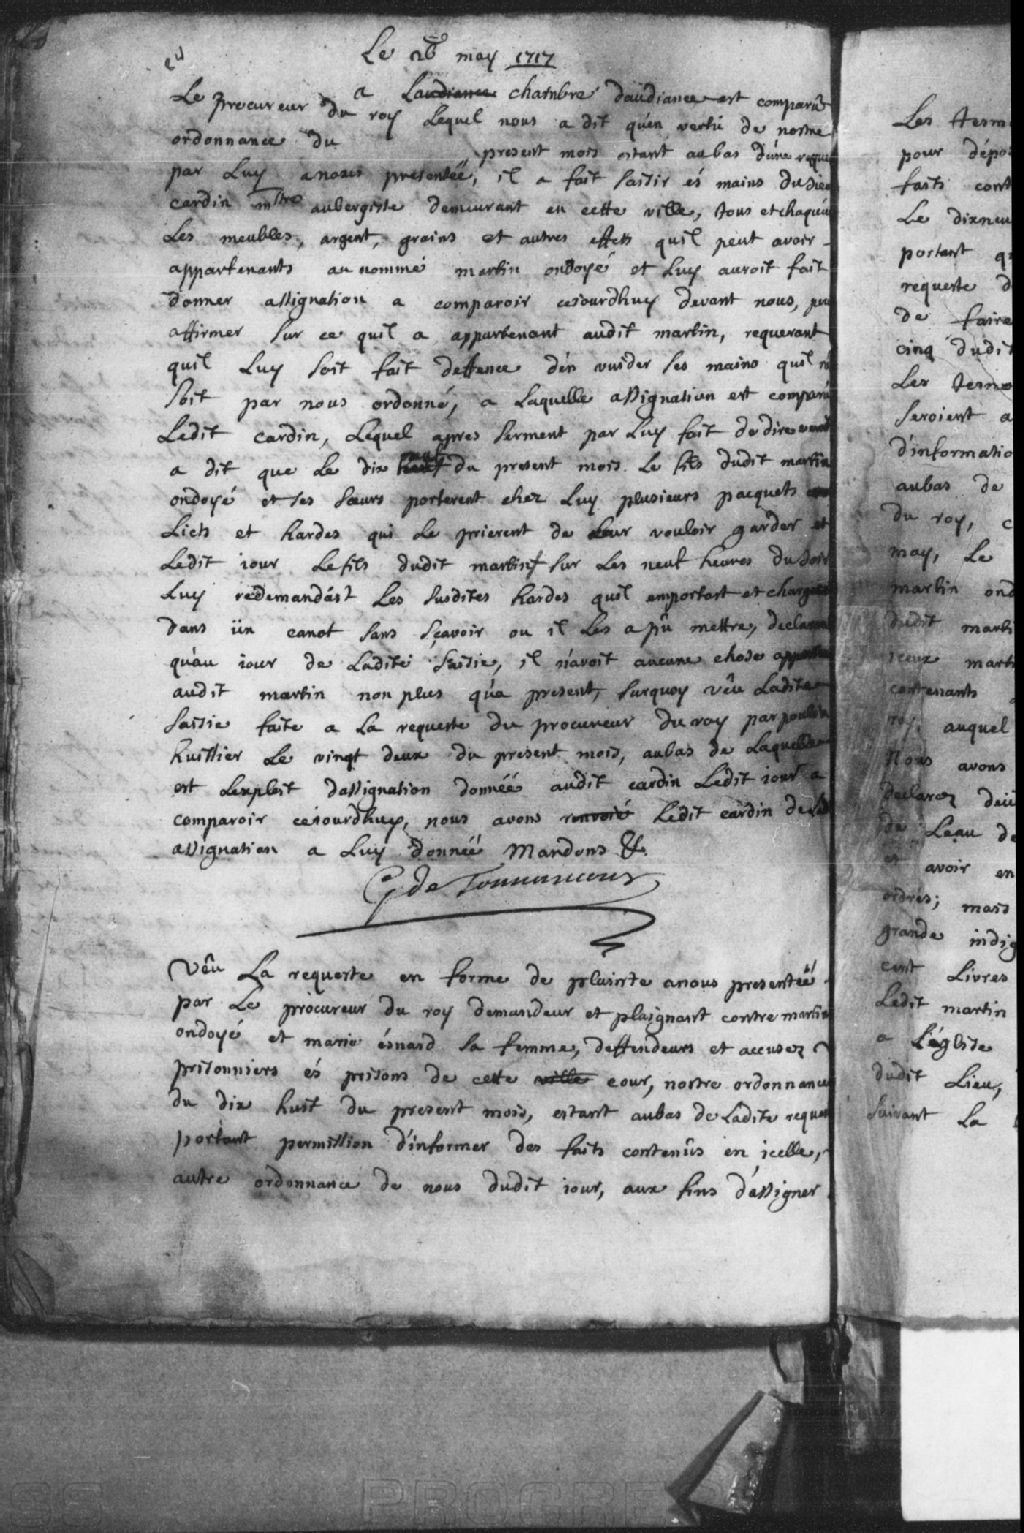 Le 26 may 1717
a Laudiance chambre daudiance est comparu
Le procureur du roy Lequel nous a dit quen vertu de nostre
ordonnance du present mois estant aubas d'une reque
par Luy anous presentéé, il a fait saisir és mains du sie
cardin aubergiste demeurant en cette ville, tous et chaqun
Les meubles, argent, grains et autres effets quil peut avoir
appartenants au nommé martin ondoyé et Luy auroit fait
donner assignation a comparoir cejourdhuy devant nous, pou
affirmer sur ce quil a appartenant audit martin, requerant
quil Luy soit fait deffence d'én vuider ses mains quil n
soit par nous ordonné, a Laquelle assignation est comparu
Ledit cardin, Lequel apres serment par Luy fait de dire verité
a dit que Le dix du present mois Le fils dudit martin
ondoyé et ses sœurs porterent chez Luy plusieurs pacquets
Licts et hardes qui Le prierent de Leur vouloir garder et
Ledit iour Le fils dudit martin sur Les neuf heures du soir
Luy redemandast Les susdites hardes quil emportast et chargea
dans ün canot sans sçavoir ou il Les a pû mettre, declarant
qu'au iour de Ladite saisie, il n'avoit aucune chose
audit martin non plus qua present, surquoy vêu Ladite
saisie faite a La requeste du procureur du roy par poulin
huissier Le vingt deux du present mois, aubas de Laquelle
est Lexploit dassignation donnéé audit cardin Ledit iour a
comparoir cejourdhuy, nous avons renvoié Ledit cardin de
assignation a Luy donnéé Mandons &c.
G de Tonnancour
Vêu La requeste en forme de plainte anous presentéé
par Le procureur du roy demandeur et plaignant contre martin
ondoyé et marie ésnard sa femme, deffendeurs et accusez
prisonniers és prisons de cette ville cour, nostre ordonnance
du dix huit du present mois, estant aubas de Ladite reques
portant permission d'informer des faits contenûs en icelle,
autre ordonnance de nous dudit iour, aux fins d'assigner
Les tesmo
pour dépo
faits cont
Le dixneu
portant q
requeste d
de faire
cinq dudit
Les tesmo
seroient a
d'informatio
aubas de
du roy, c
may, Le
martin ond
dudit marti
iceux marti
contenants
roy auquel
Nous avons
declarez deü
de L'eau de
avoir en
ordres; mais
grande indig
cent Livres
Ledit martin
a L'église
dudit Lieu,
suivant La